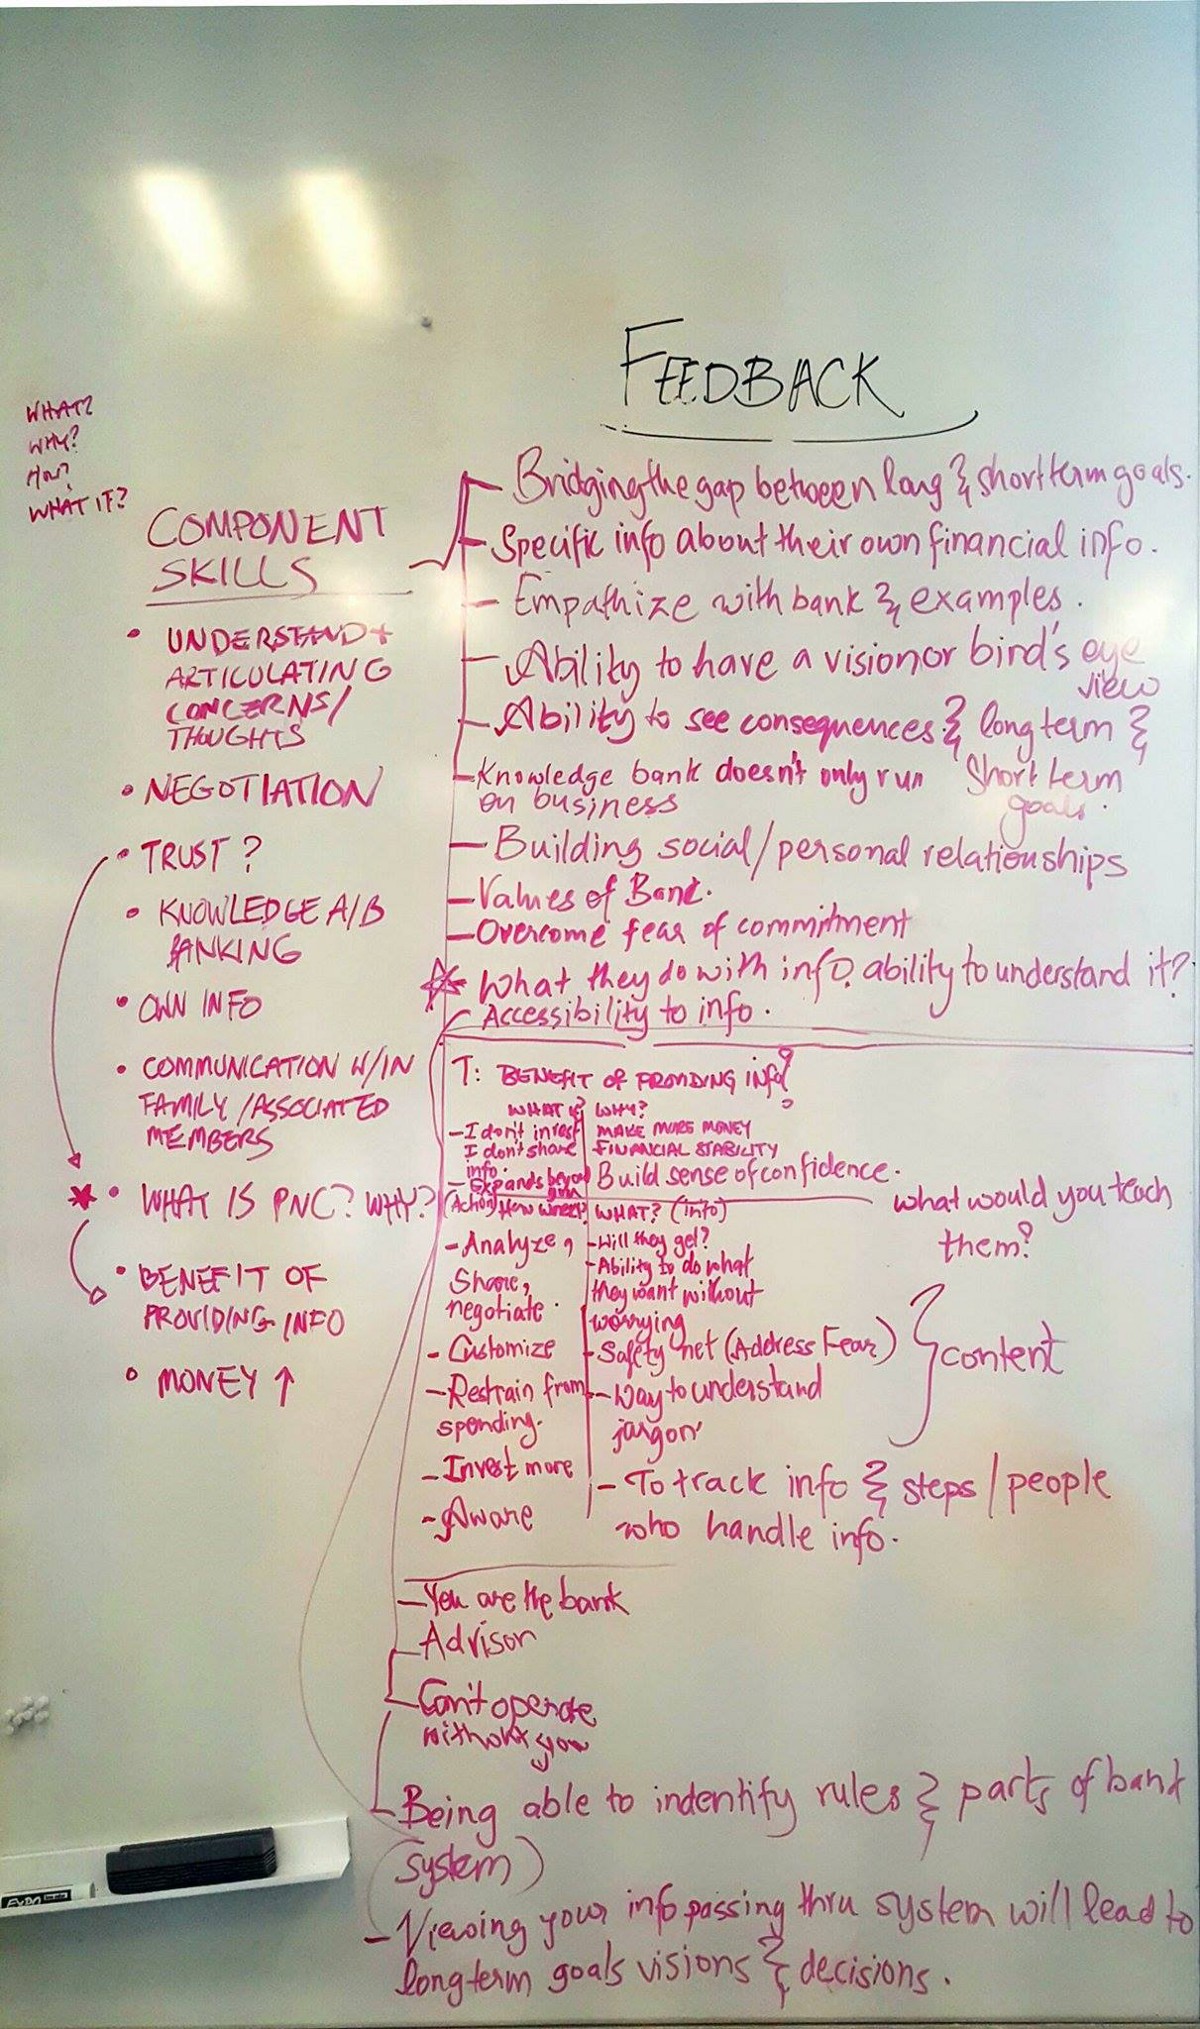 FEEDBACK
WHAT?
WHY?
HOW?
WHAT IF?
COMPONENT
SKILLS
• UNDERSTAND +
ARTICULATING
CONCERNS/
THOUGHTS
• NEGOTIATION
• TRUST?
• KNOWLEDGE A/B
BANKING
• OWN INFO
• COMMUNICATION W/IN
FAMILY/ASSOCIATED
MEMBERS
• WHAT IS PNC? WHY?
• BENEFIT OF
PROVIDING INFO
• MONEY ↑
- Bridging the gap between long & short term goals.
- Specific info about their own financial info.
- Empathize with bank & examples.
- Ability to have a vision or bird's eye
view
- Ability to see consequences & long term &
short term
goals.
- Knowledge bank doesn't only run
on business
- Building social/personal relationships
- Values of Bank.
- Overcome fear of commitment
☆ What they do with info, ability to understand it?
- Accessibility to info.
T: BENEFIT OF PROVIDING info?
WHAT IF?
- I don't invest
I don't share
info.
- Expands beyond
WHY?
MAKE MORE MONEY
FINANCIAL STABILITY
Build sense of confidence.
(Action) How
- Analyze,
Share,
negotiate.
- Customize
- Restrain from
spending.
- Invest more
- Aware
WHAT? (info)
- Will they get?
- Ability to do what
they want without
worrying
- Safety net (Address Fear)
- Way to understand
jargon
- To track info & steps/people
who handle info.
what would you teach
them?
} content
- You are the bank
- Advisor
- Can't operate
without you
- Being able to indentify rules & parts of bank
(system)
- Viewing your info passing thru system will lead to
longterm goals visions & decisions.
EXPO